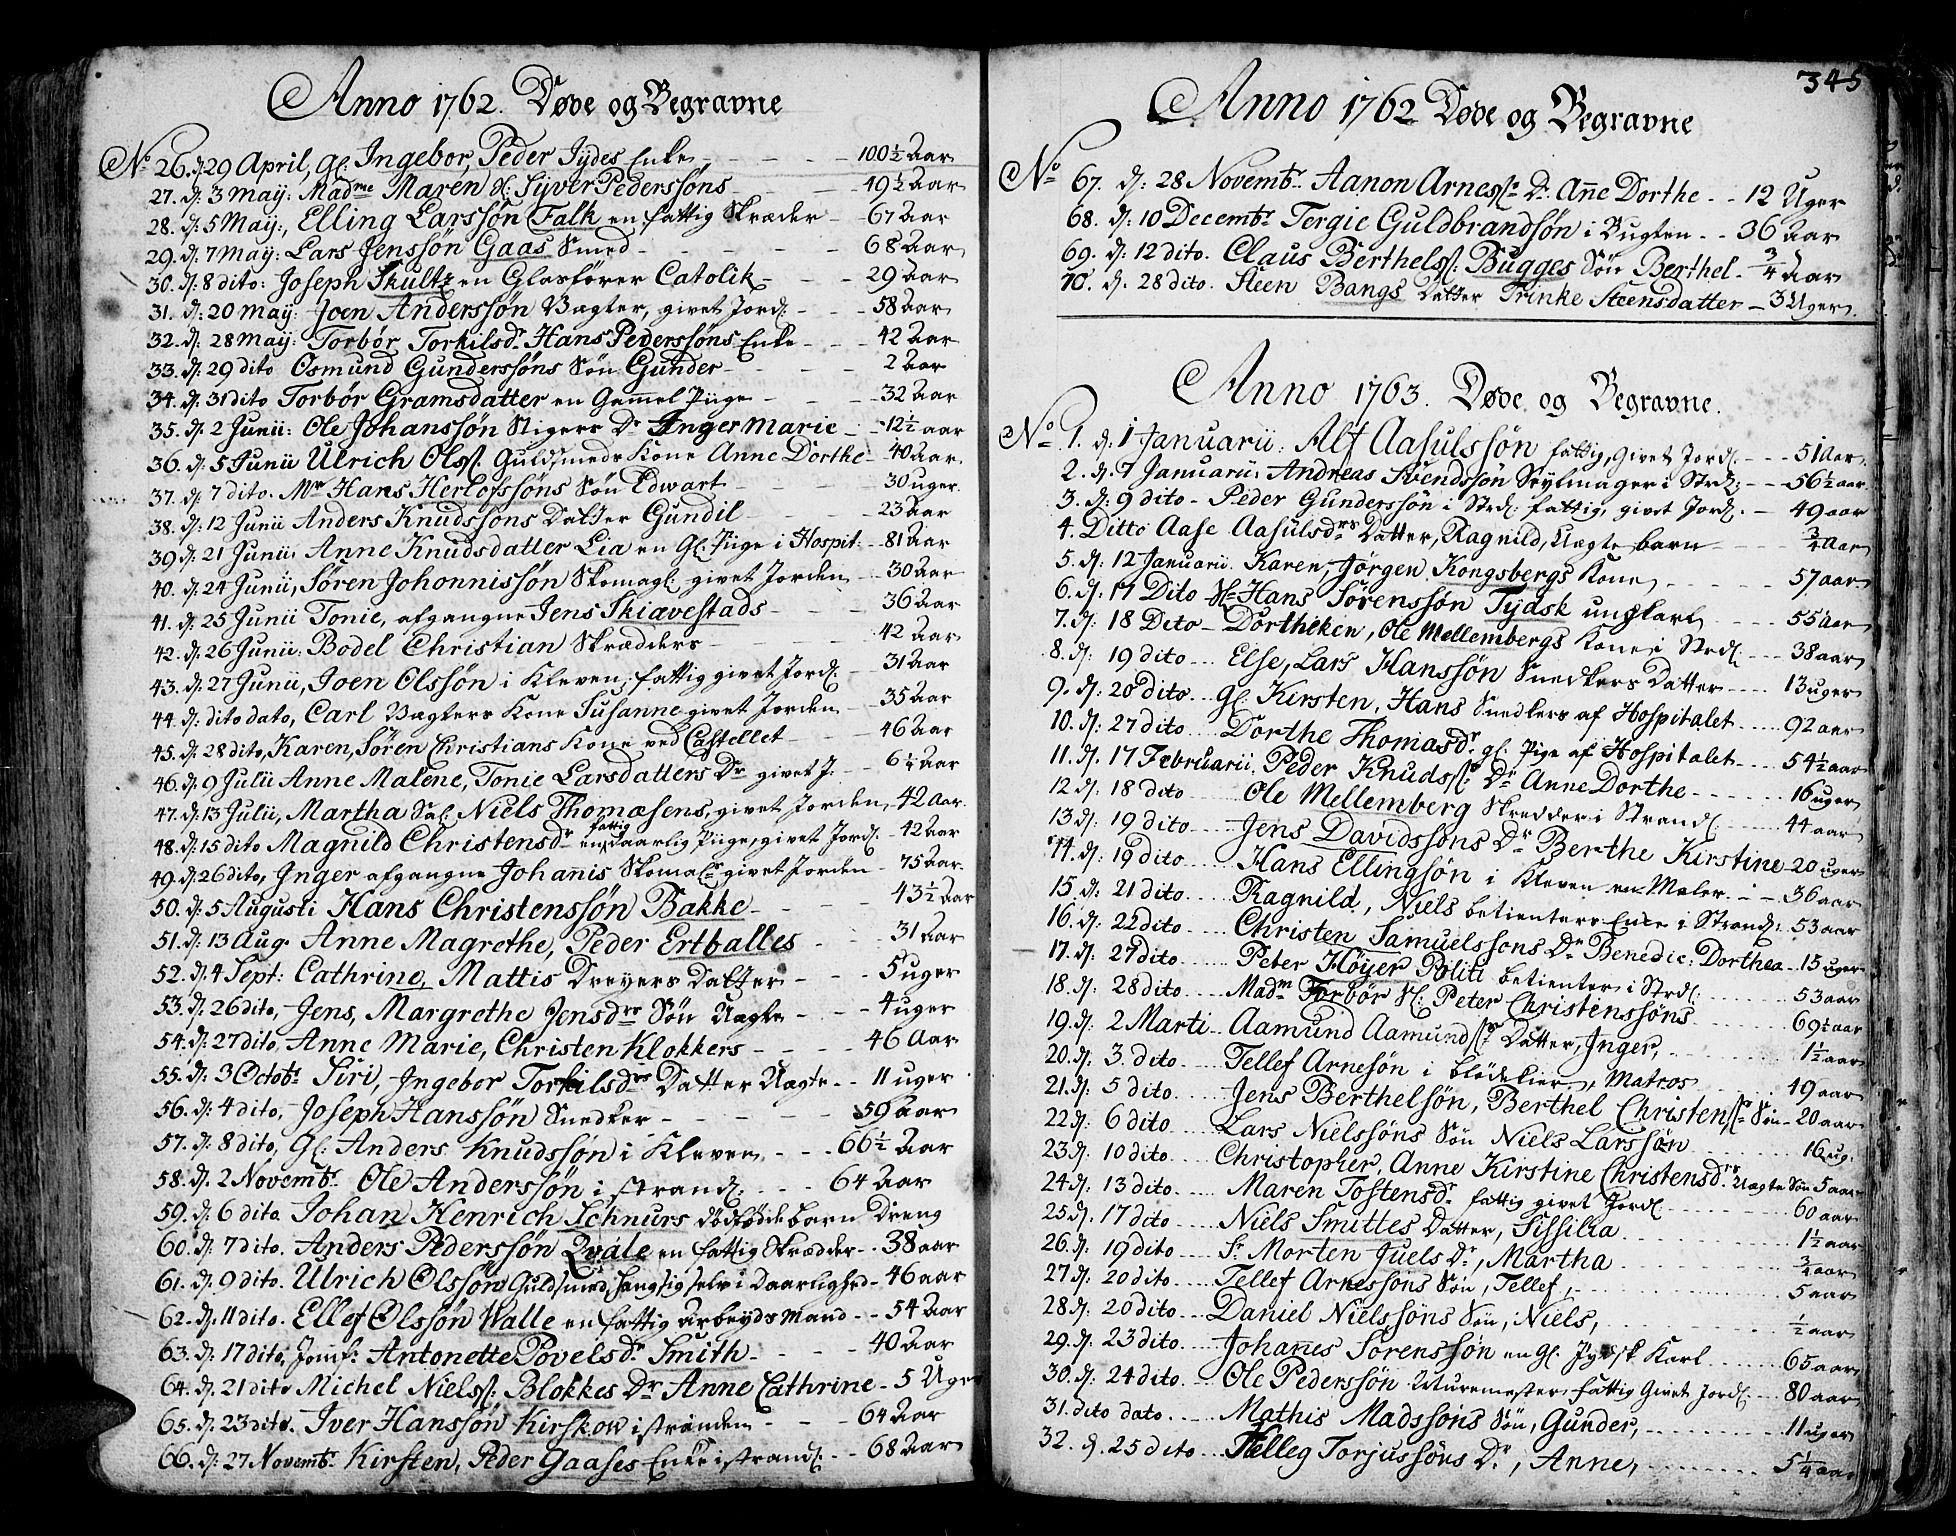 Anno 1762. Døde og Begravne
No 26. d. 29 April, gl. Ingebor, Peder Jydes Enke - 100½ Aar
27. d: 3 Maÿ: Madme Maren Sl: Siver Pederssøns - 49½ Aar
28. d: 5 Maÿ, Elling Larssøn Falk en fattig Skræder - 67 Aar
29. d: 7 Maÿ: Lars Jenssøn Gaas Smed - 68 Aar
30. d: 8 dito: Joseph Skultz en Glasfører Catolik - 29 Aar
31. d: 20 Maÿ: Joen Anderssøn Vægter, givet Jord: - 58 Aar
32. d: 28 Maÿ: Torbør Torkilsdr Hans Pederssøns Enke - 42 Aar
33. d: 29 dito Osmund Gunderssøns Søn Gunder - 2 Aar
34. d: 31 dito Torbør Gramsdatter en Gamel Piige - 32 Aar
35. d: 2 Junii: Ole Johanssøn Stigers Dr Inger Marie - 12½ aar
36. d: 5 Junii Ulrich Olss: Guldsmeds Kone Anne Dorthe - 40 Aar
37. d: 7 dito. Mr Hans Herlofssøns Søn Edwart - 30 uger
38. d: 12 Junii Anders Knudssøns Datter Gundil - 23 Aar
39 d: 21 Junii, Anne Knudsdatter Lia en Gl. Piige i Hospit: - 81 Aar
40. d: 24 Junii, Søren Johonnissøn Skomag: givet Jorden - 30 Aar
41. d: 25 Junii Tonie, afgangne Jens Skiavestads - 36 Aar
42. d: 26 Junii: Bodel Christian Skrædders - 42 Aar
43. d: 27 Junii, Joen Olssøn i Kleven, fattig givet Jord: - 31 Aar
44. d: dito dato, Carl Vægters Kone Susanne givet Jorden - 35 Aar
45. d: 28 dito, Karen, Søren Christians Kone ved Castellet - 46 Aar
46. d: 9 Julii Anne Malene, Tonie Larsdatters Dr givet J. - 6¼ Aar
47. d: 13 Julii, Martha Sal: Niels Thomæsens, givet Jorden, 42 Aar.
48. d: 15 dito Magnild Christensdr en fattig daarlig Piige, givet Jord: - 42 Aar
49. d: 26 dito, Inger afgangne Johanis Skomagr givet Jorden - 75 Aar
50. d: 5 Augusti Hans Christenssøn Bakke - 43½ Aar
51. d: 13 Aug. Anne Magrethe, Peder Ertballes - 31 Aar
52. d: 4 Sept: Cathrine, Mattis Dreyers Datter - 5 uger
53. d: 26 dito, Jens, Margrethe Jensdrs Søn Uægte - 4 uger
54. d: 27 dito, Anne Marie, Christen Klokkers - 46 Aar
55. d: 3 Octobr Siri, Ingebor Torkilsdrs Datter Uægte - 11 uger
56. d: 4 dito, Joseph Hanssøn Snedker - 59 aar
57. d: 8 dito, Gl: Anders Knudssøn i Kleven - 66½ Aar
58. d: 2 Novembr Ole Anderssøn i Strand: - 64 Aar
59. d: 6 dito. Johan Henrich Schnurs dødfødde barn Dreng
60. d: 7 dito. Anders Pederssøn Qvale en fattig Skrædder - 38 aar
61. d: 9 dito. Ulrich Olssøn Guldsmed, hængt sig selv i Daarlighed - 46 aar
62. d: 11 dito. Ellef Olssøn Walle en fattig Arbeyds Mand - 54 Aar
63. d: 17 dito, Jomf: Antonette Povelsdr Smith - 40 Aar
64. d: 21 dito Michel Nielss: Blokkes Dr Anne Cathrine - 5 Uger
65. d: 23 dito. Iver Hanssøn Kirskow i stranden - 64 Aar
66. d: 27 Novembr Kirsten, Peder Gaases Enke i strand: - 68 Aar
345
Anno 1762 Døde og Begravne
No 67. d: 28 Novembr Aanon Arnessns Dr Anne Dorthe - 12 Uger
68. d: 10 Decembr Tergie Guldbrandsøn i Bugten - 36 Aar
69. d: 12 dito. Claus Berthelss: Bugges Søn Berthel - ¾ Aar
70. d. 28 dito. Steen Bangs Datter Trinke Steensdatter - 3 Uger.
Anno 1763. Døde og Begravne.
No 1. d: 1 Januarii: Alf Aasulssøn fattig, givet Jord: - 51 Aar
2. d: 7 Januarii: Andreas Svendssøn Seylmager i Strd: - 56½ aar
3. d: 9 dito - Peder Gunderssøn i Strd: fattig, givet Jord: - 49 aar
4. Ditto Aase Aasulsdrs Datter, Ragnild, Uægte barn - ¾ Aar
5. d: 12 Januarii. Karen, Jørgen Kongsbergs Kone - 57 aar
6. d: 17 Dito Sr Hans Sørenssøn Tydsk ungkarl - 55 aar
7. d: 18 Dito - Dortheken, Ole Mellembergs Kone i Strd: - 38 aar
8. d: 19 dito - Else, Lars Hanssøn Snedkers Datter - 13 uger
9. d: 20 dito - gl: Kirsten, Hans Snedkers af Hospitalet - 92 aar
10. d: 27 dito Dorthe Thomasdr gl: Pige af Hospitalet - 54½ aar
11. d. 17 Februarii. Peder Knudss: Dr Anne Dorthe - 16 uger
12 d: 18 dito Ole Mellemberg Skredder i Strand: - 44 aar
13 d: 19 dito Jens Davidssøns Dr Berthe Kirstine - 20 uger
14. d: 19 dito Hans Ellingsøn i Kleven en Maler - 36 aar
15. d: 21 dito Ragnild, Niels betienters Enke i Strand: 53 aar
16. d: 22 dito Christen Samuelssons Dr Benedic: Dorthea - 15 uger
17. d: 27 dito Peter Høyer Politi betienter i Strd: - 53 aar
18. d: 28 dito Madm Torbør Sl: Peter Christenssøns - 69½ aar
19. d: 2 Marti - Aamund Aamundss: Datter, Inger, - 1½ aar
20. d: 3. dito Tellef Arnesøn i , Matros - 49 aar
21. d: 5 dito Jens Berthelsøn, Berthel Christenss: Søn - 20 aar
22 d: 6 dito Lars Nielssøns Søn Niels Larssøn - 16 ug.
23. d: 10 dito Christopher, Anne Kirstine Christensdrs Uægte Søn 5 aar
24. d: 13 dito Maren Tostensdr fattig givet Jord: - 60 aar
25. d: 17 dito Niels Smittes Datter, Sissilla - 1½ aar
26. d: 19 dito Sr Morten Juels Dr, Martha - ¾ aar
27. d: 20 dito Tellef Arnessøns Søn, Tellef, - 5 aar
28. d: 20 dito Daniel Nielssøns Søn, Niels, - ½ aar
29. d: 23 dito Johanes Sorenssøn en gl. Jydsk Karl - 65 aar
30. d: 24 dito. Ole Pederssøn fattig Givet Jord: - 80 aar
31. dito dato. Mathis Madssøns Søn, Gunder, - 11 uger
32. d. 25 dito Telleg Torjussøns Dr, Anne, - 5¼ aar